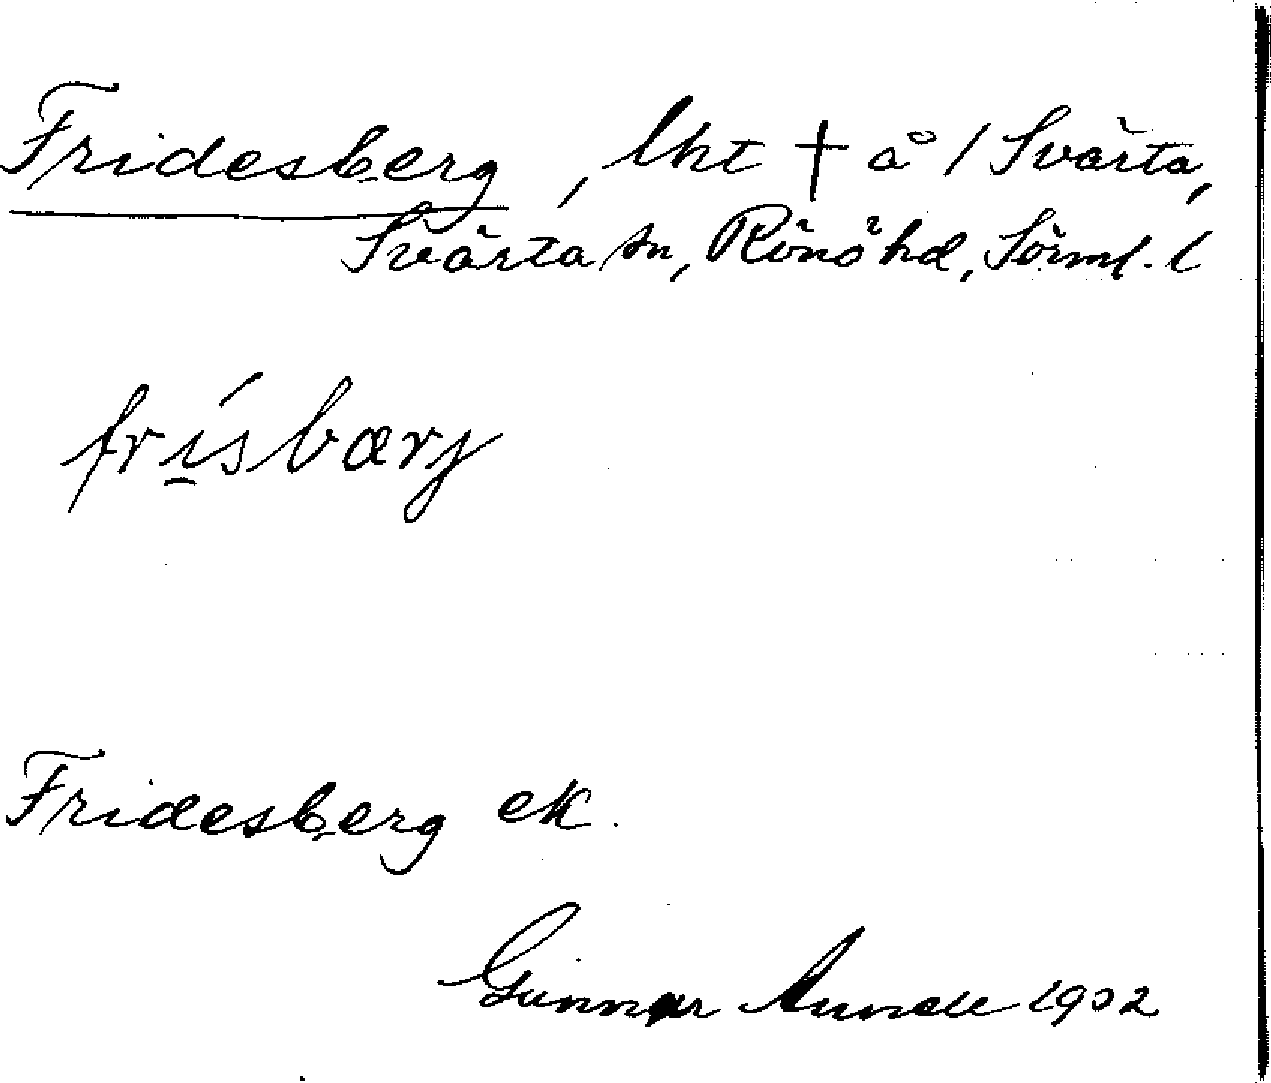 Fridesberg, lht † å / Svärta,
Svärta sn, Rönö hd, Sörml. l
frísbærj
Fridesberg ek.
Gunnar 1902